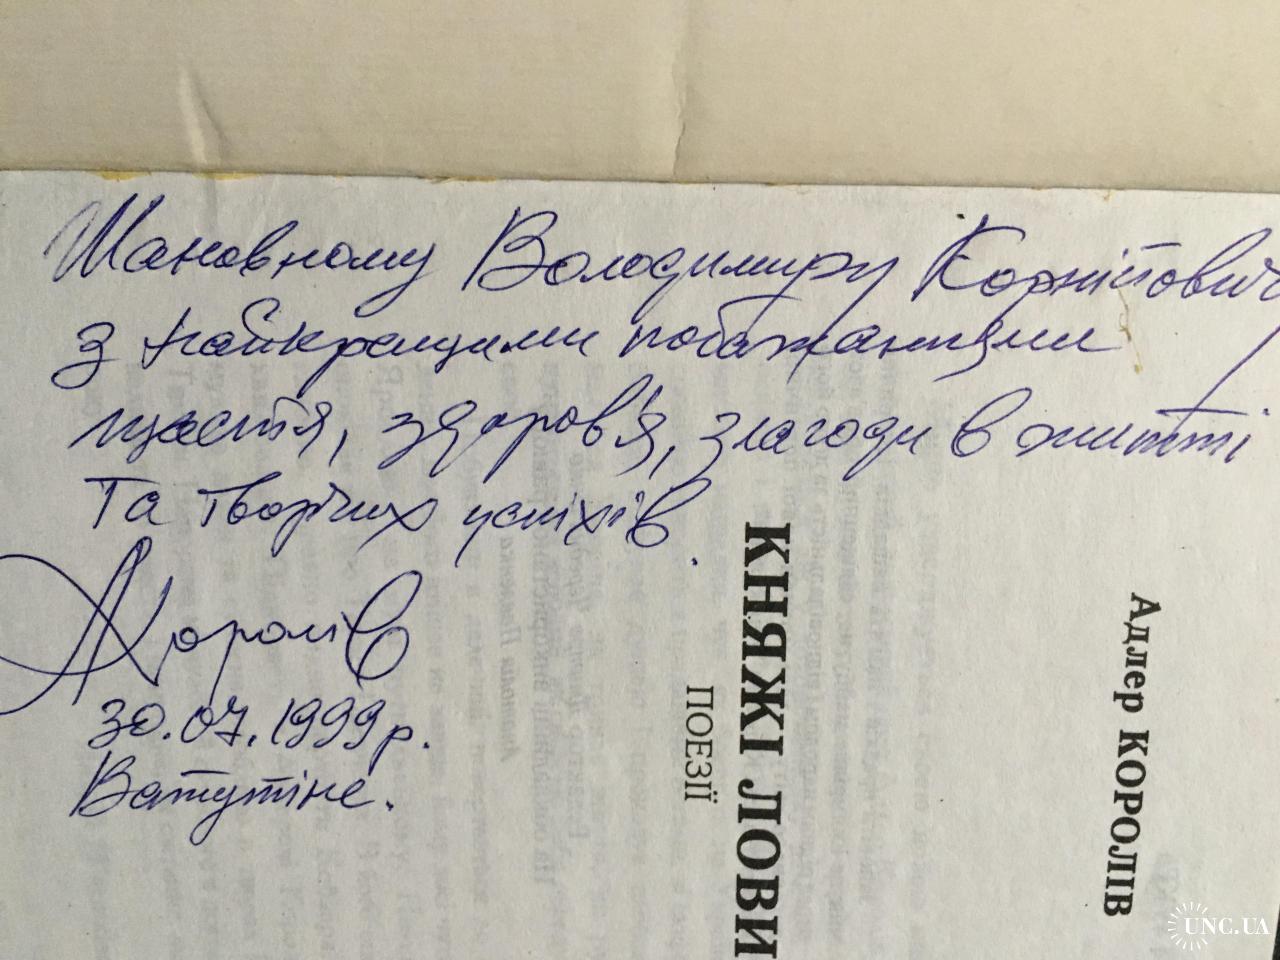 Шановному Володимиру Корнійович
з найкращими побажаннями
щастя, здоров'я, злагоди в житті
та творчих успіхів.
АКоролів
30.07.1999р.
Ватутіне.
Адлер КОРОЛІВ
КНЯЖІ ЛОВИ
ПОЕЗІЇ
UNC.UA